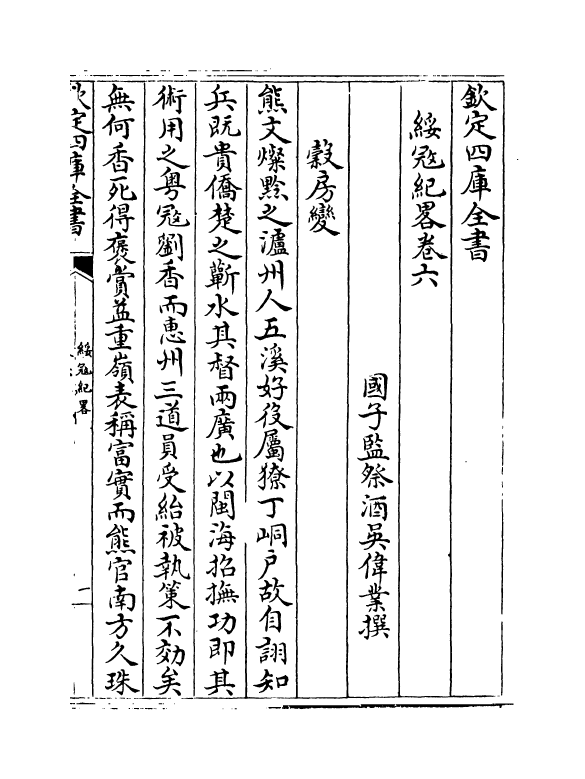 欽定四庫全書
綏冦紀畧卷六
國子監祭酒吳偉業撰
糓房變
熊文燦黔之瀘州人五溪好役屬獠丁峒户故自詡知
兵既貴僑楚之蘄水其督兩廣也以閩海招撫功即其
術用之粤冦劉香而惠州三道員受紿被執策不効矣
無何香死得褒賞益重嶺表稱富實而熊官南方久珠
欽定四庫全書
綏冦紀畧